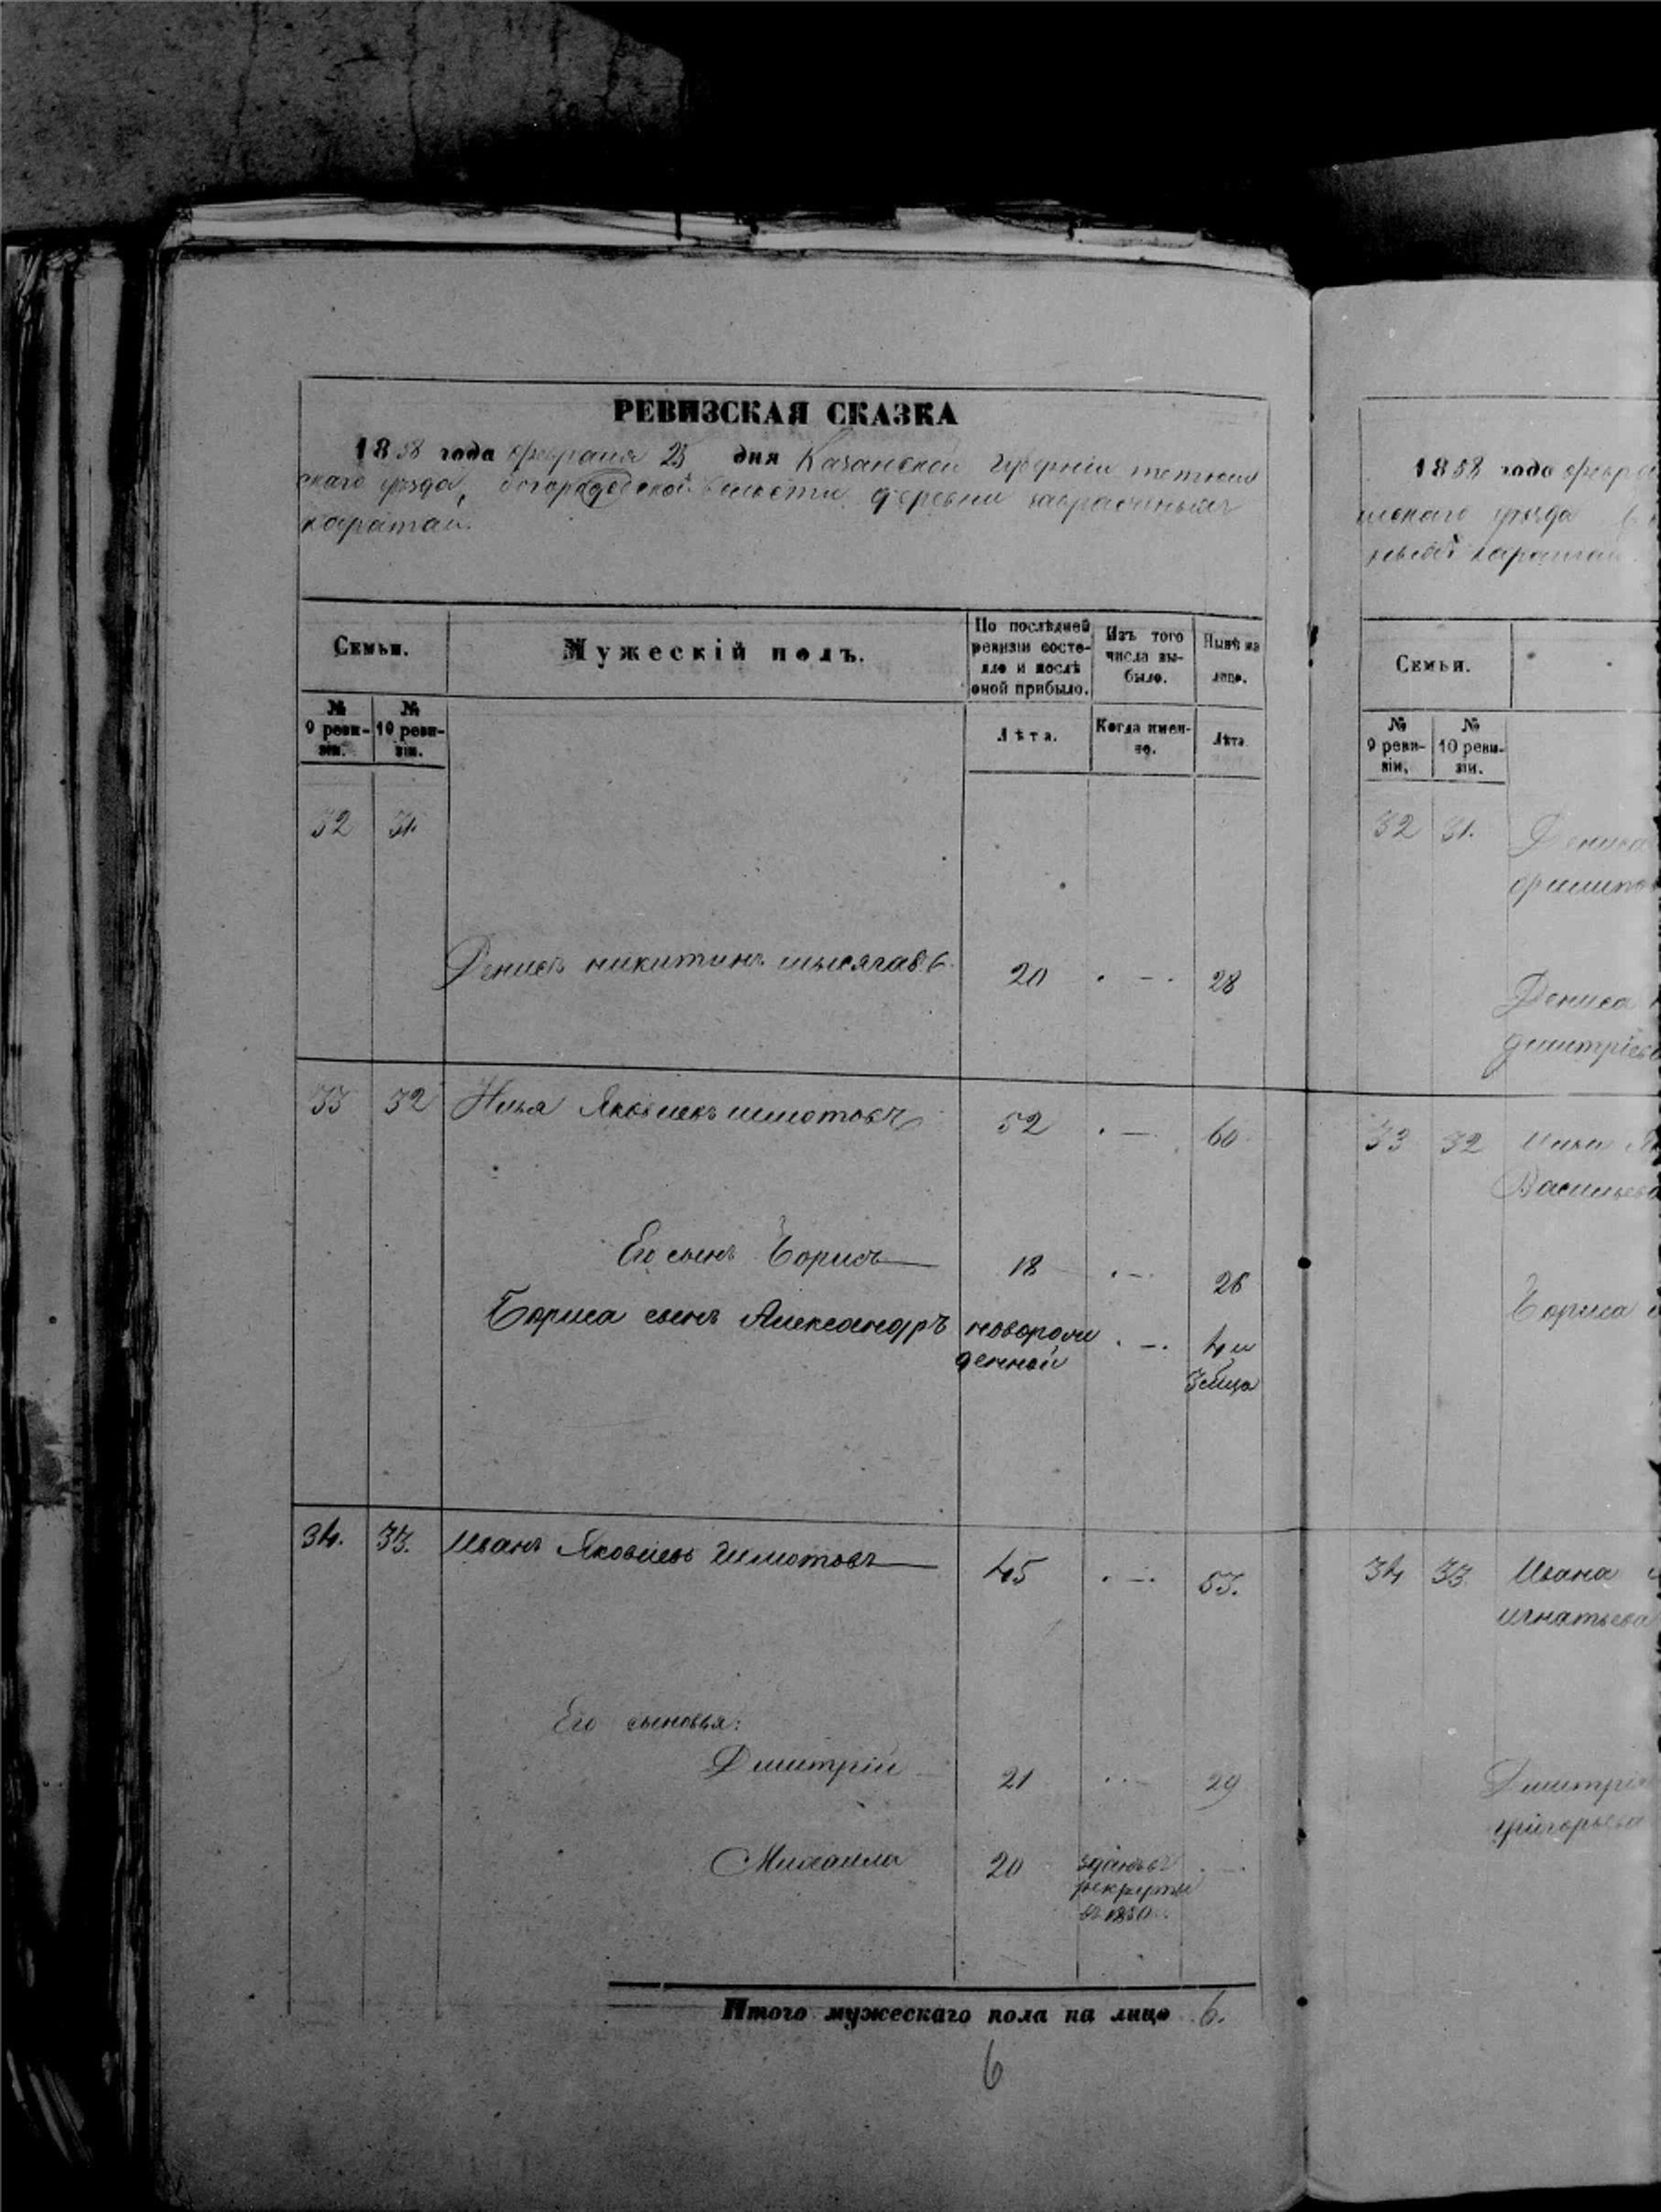 РЕВИЗСКАЯ СКАЗКА
1858 года февраля 25 дня Казанской губерніи тетюш
скаго уѣзда, богородской волости деревни заовражныхъ
каратай.
Семьи.
Мужескій полъ.
По послѣдней ревизіи состояло и послѣ оной прибыло.
Изъ того числа выбыло.
Нынѣ на лицо.
№ 9 ревизіи.
№ 10 ревизіи.
Лѣта.
Когда именно.
Лѣта
32 31.
Денисъ никитинъ 20 . — . 28
33 32 Илья Яковлевъ 52 . — 60
Его сынъ Борисъ 18 . — . 26
Бориса сынъ Александръ новорож . — . 4 и
денной 3 мѣца
34. 33. Иванъ Яковлевъ 45 . — . 53.
Его сыновья:
Дмитрій 21 . . — 29
Михаила 20 зданъ въ . — .
рекруты
въ 1850.
Итого мужескаго пола на лицо 6.
6
1858 года февра
шскаго уѣзда
каратаи
Семьи.
№ 9 ревизіи,
№ 10 ревизіи.
32 31. Дениса
филипо
Дениса
дмитріева
33 32 Ильи Як
Васильева
Бориса
34 33 Ивана
игнатьева
Дмитрія
григорьева